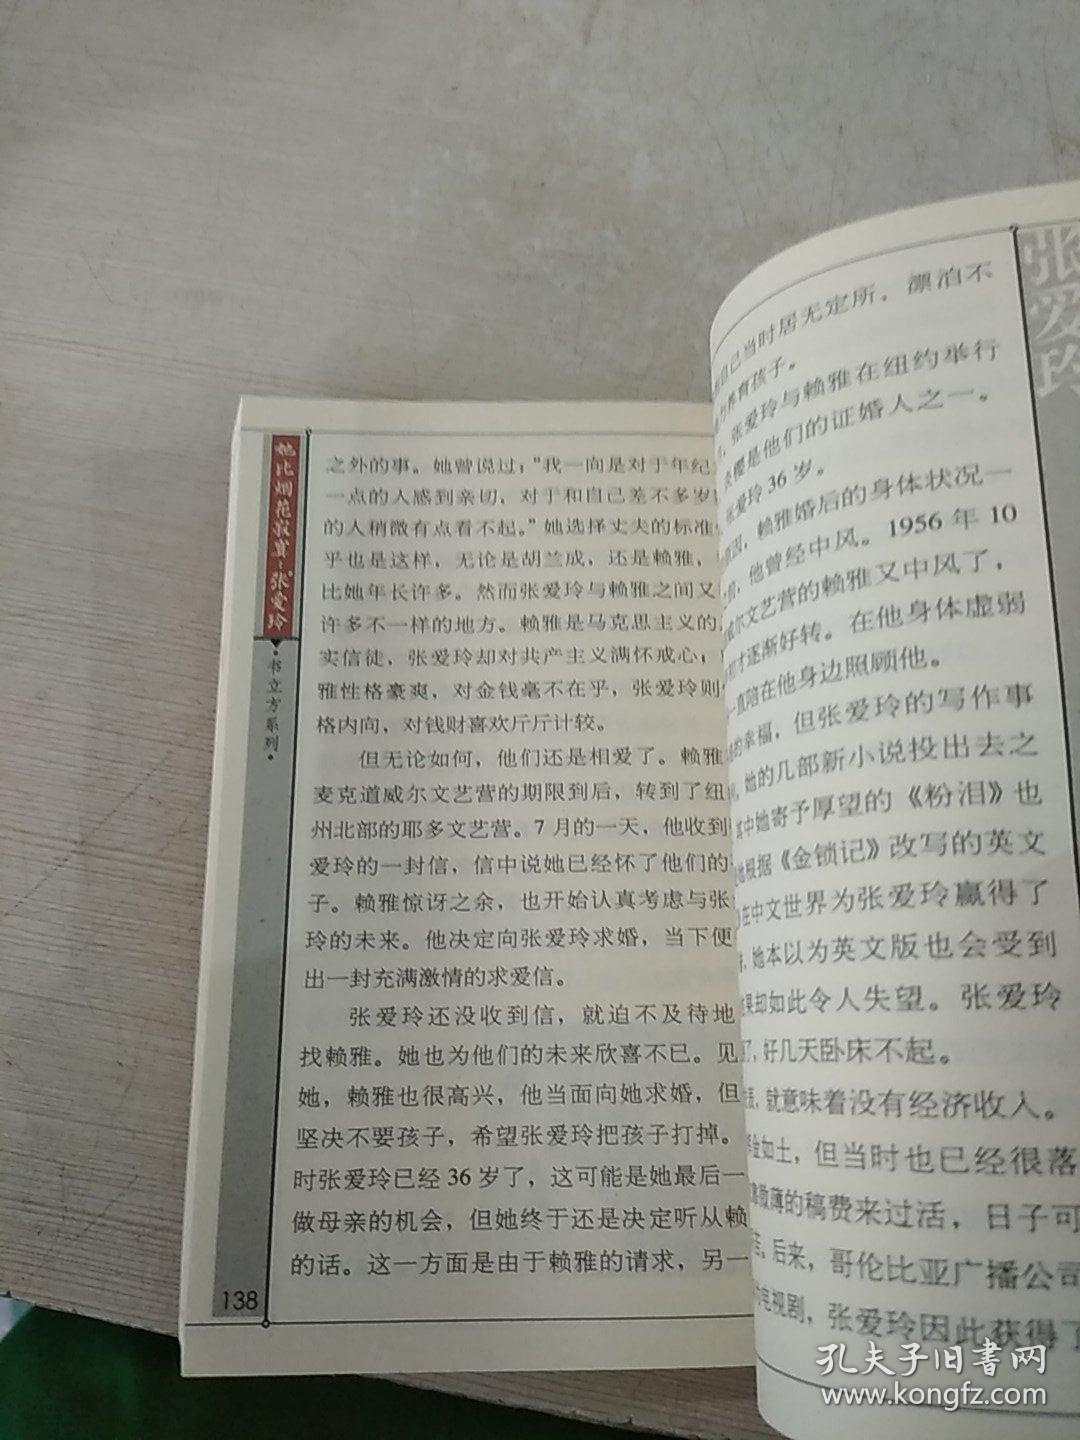 她比烟花寂寞：张爱玲
·书立方系列·
之外的事。她曾说过："我一向是对于年纪
一点的人感到亲切，对于和自己差不多岁
的人稍微有点看不起。"她选择丈夫的标准
乎也是这样，无论是胡兰成，还是赖雅，
比她年长许多。然而张爱玲与赖雅之间又
许多不一样的地方。赖雅是马克思主义的
实信徒，张爱玲却对共产主义满怀戒心；
雅性格豪爽，对金钱毫不在乎，张爱玲则
格内向，对钱财喜欢斤斤计较。
但无论如何，他们还是相爱了。赖雅
麦克道威尔文艺营的期限到后，转到了纽
州北部的耶多文艺营。7月的一天，他收到
爱玲的一封信，信中说她已经怀了他们的
子。赖雅惊讶之余，也开始认真考虑与张
玲的未来。他决定向张爱玲求婚，当下便
出一封充满激情的求爱信。
张爱玲还没收到信，就迫不及待地
找赖雅。她也为他们的未来欣喜不已。见
她，赖雅也很高兴，他当面向她求婚，但
坚决不要孩子，希望张爱玲把孩子打掉。
时张爱玲已经36岁了，这可能是她最后一
做母亲的机会，但她终于还是决定听从赖
的话。这一方面是由于赖雅的请求，另一
138
张爱玲
自己当时居无定所，漂泊不
力养育孩子。
，张爱玲与赖雅在纽约举行
炎樱是他们的证婚人之一。
张爱玲36岁。
原因，赖雅婚后的身体状况一
前，他曾经中风。1956年10
威尔文艺营的赖雅又中风了，
才逐渐好转。在他身体虚弱
一直陪在他身边照顾他。
的幸福，但张爱玲的写作事
，她的几部新小说投出去之
其中她寄予厚望的《粉泪》也
她根据《金锁记》改写的英文
在中文世界为张爱玲赢得了
，她本以为英文版也会受到
果却如此令人失望。张爱玲
了，好几天卧床不起。
，就意味着没有经济收入。
金如土，但当时也已经很落
微薄的稿费来过活，日子可
。后来，哥伦比亚广播公司
电视剧，张爱玲因此获得了
孔夫子旧书网
www.kongfz.com